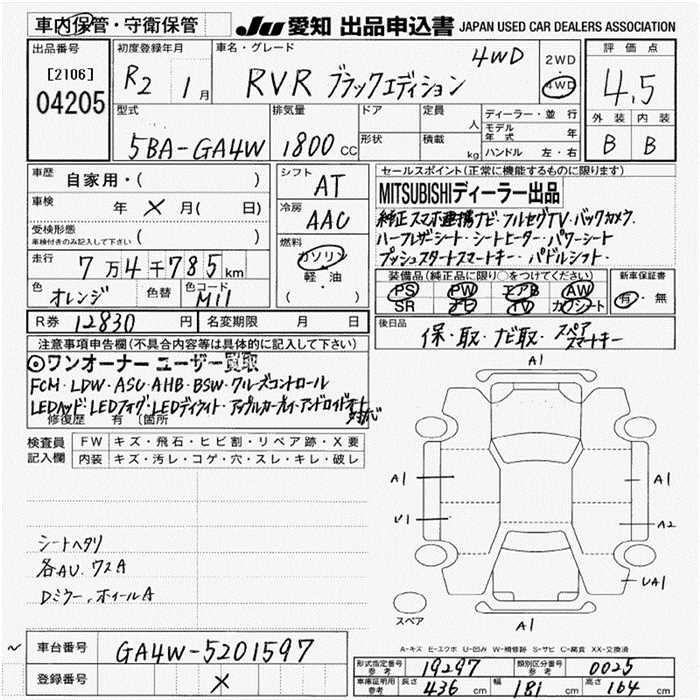 車内保管・守衛保管
JU 愛知 出品申込書 JAPAN USED CAR DEALERS ASSOCIATION
出品番号
[2106]
04205
初度登録年月
R2 1月
車名・グレード
RVR ブラックエディション 4WD
2WD
4WD
評価点
4.5
外装 内装
B B
型式
5BA-GA4W
排気量
1800 CC
ドア
形状
定員 人
積載 kg
ディーラー・並行
モデル年式 年
ハンドル 左・右
車歴 自家用・( )
車検 年 X 月( 日)
受検形態
車検付きのみ記入して下さい ( )
走行 7万4千785km
色 オレンジ 色替 色コード M11
シフト AT
冷房 AAC
燃料
ガソリン
軽・油
( )
セールスポイント(正常に機能するものに限ります)
MITSUBISHIディーラー出品
純正スマホ連携ナビ・フルセグTV・バックカメラ
ハーフレザーシート・シートヒーター・パワーシート
プッシュスタートスマートキー・パドルシフト・
装備品(純正品に限り○をつけてください)
PS PW エアB AW
SR ナビ TV カワシート
新車保証書
有・無
R券 12830円 名変期限 月 日
後日品 保・取・ナビ取・スペアスマートキー
注意事項申告欄(不具合内容等は具体的に記入して下さい)
⊙ワンオーナー ユーザー買取
FCM・LDW・ASC・AHB・BSW・クルーズコントロール
LEDヘッド・LEDフォグ・LEDデイライト・アップルカープレイ・アンドロイドオート対応
修復歴 有 (箇所
検査員記入欄
FW キズ・飛石・ヒビ割・リペア跡・X要
内装 キズ・汚レ・コゲ・穴・スレ・キレ・破レ
シートヘタリ
各AU.ワスA
Dミラー.ホイールA
A1
A1
A1
U1
A2
UA1
A1
スペア
A-キズ E-エクボ U-凹み W-補修跡 S-サビ C-腐食 XX-交換済
~ 車台番号 GA4W-5201597
登録番号 X
形式指定番号 参考 19297 類別区分番号 参考 0025
車庫証明用 参考 長さ 436 cm 幅 181 cm 高さ 164 cm